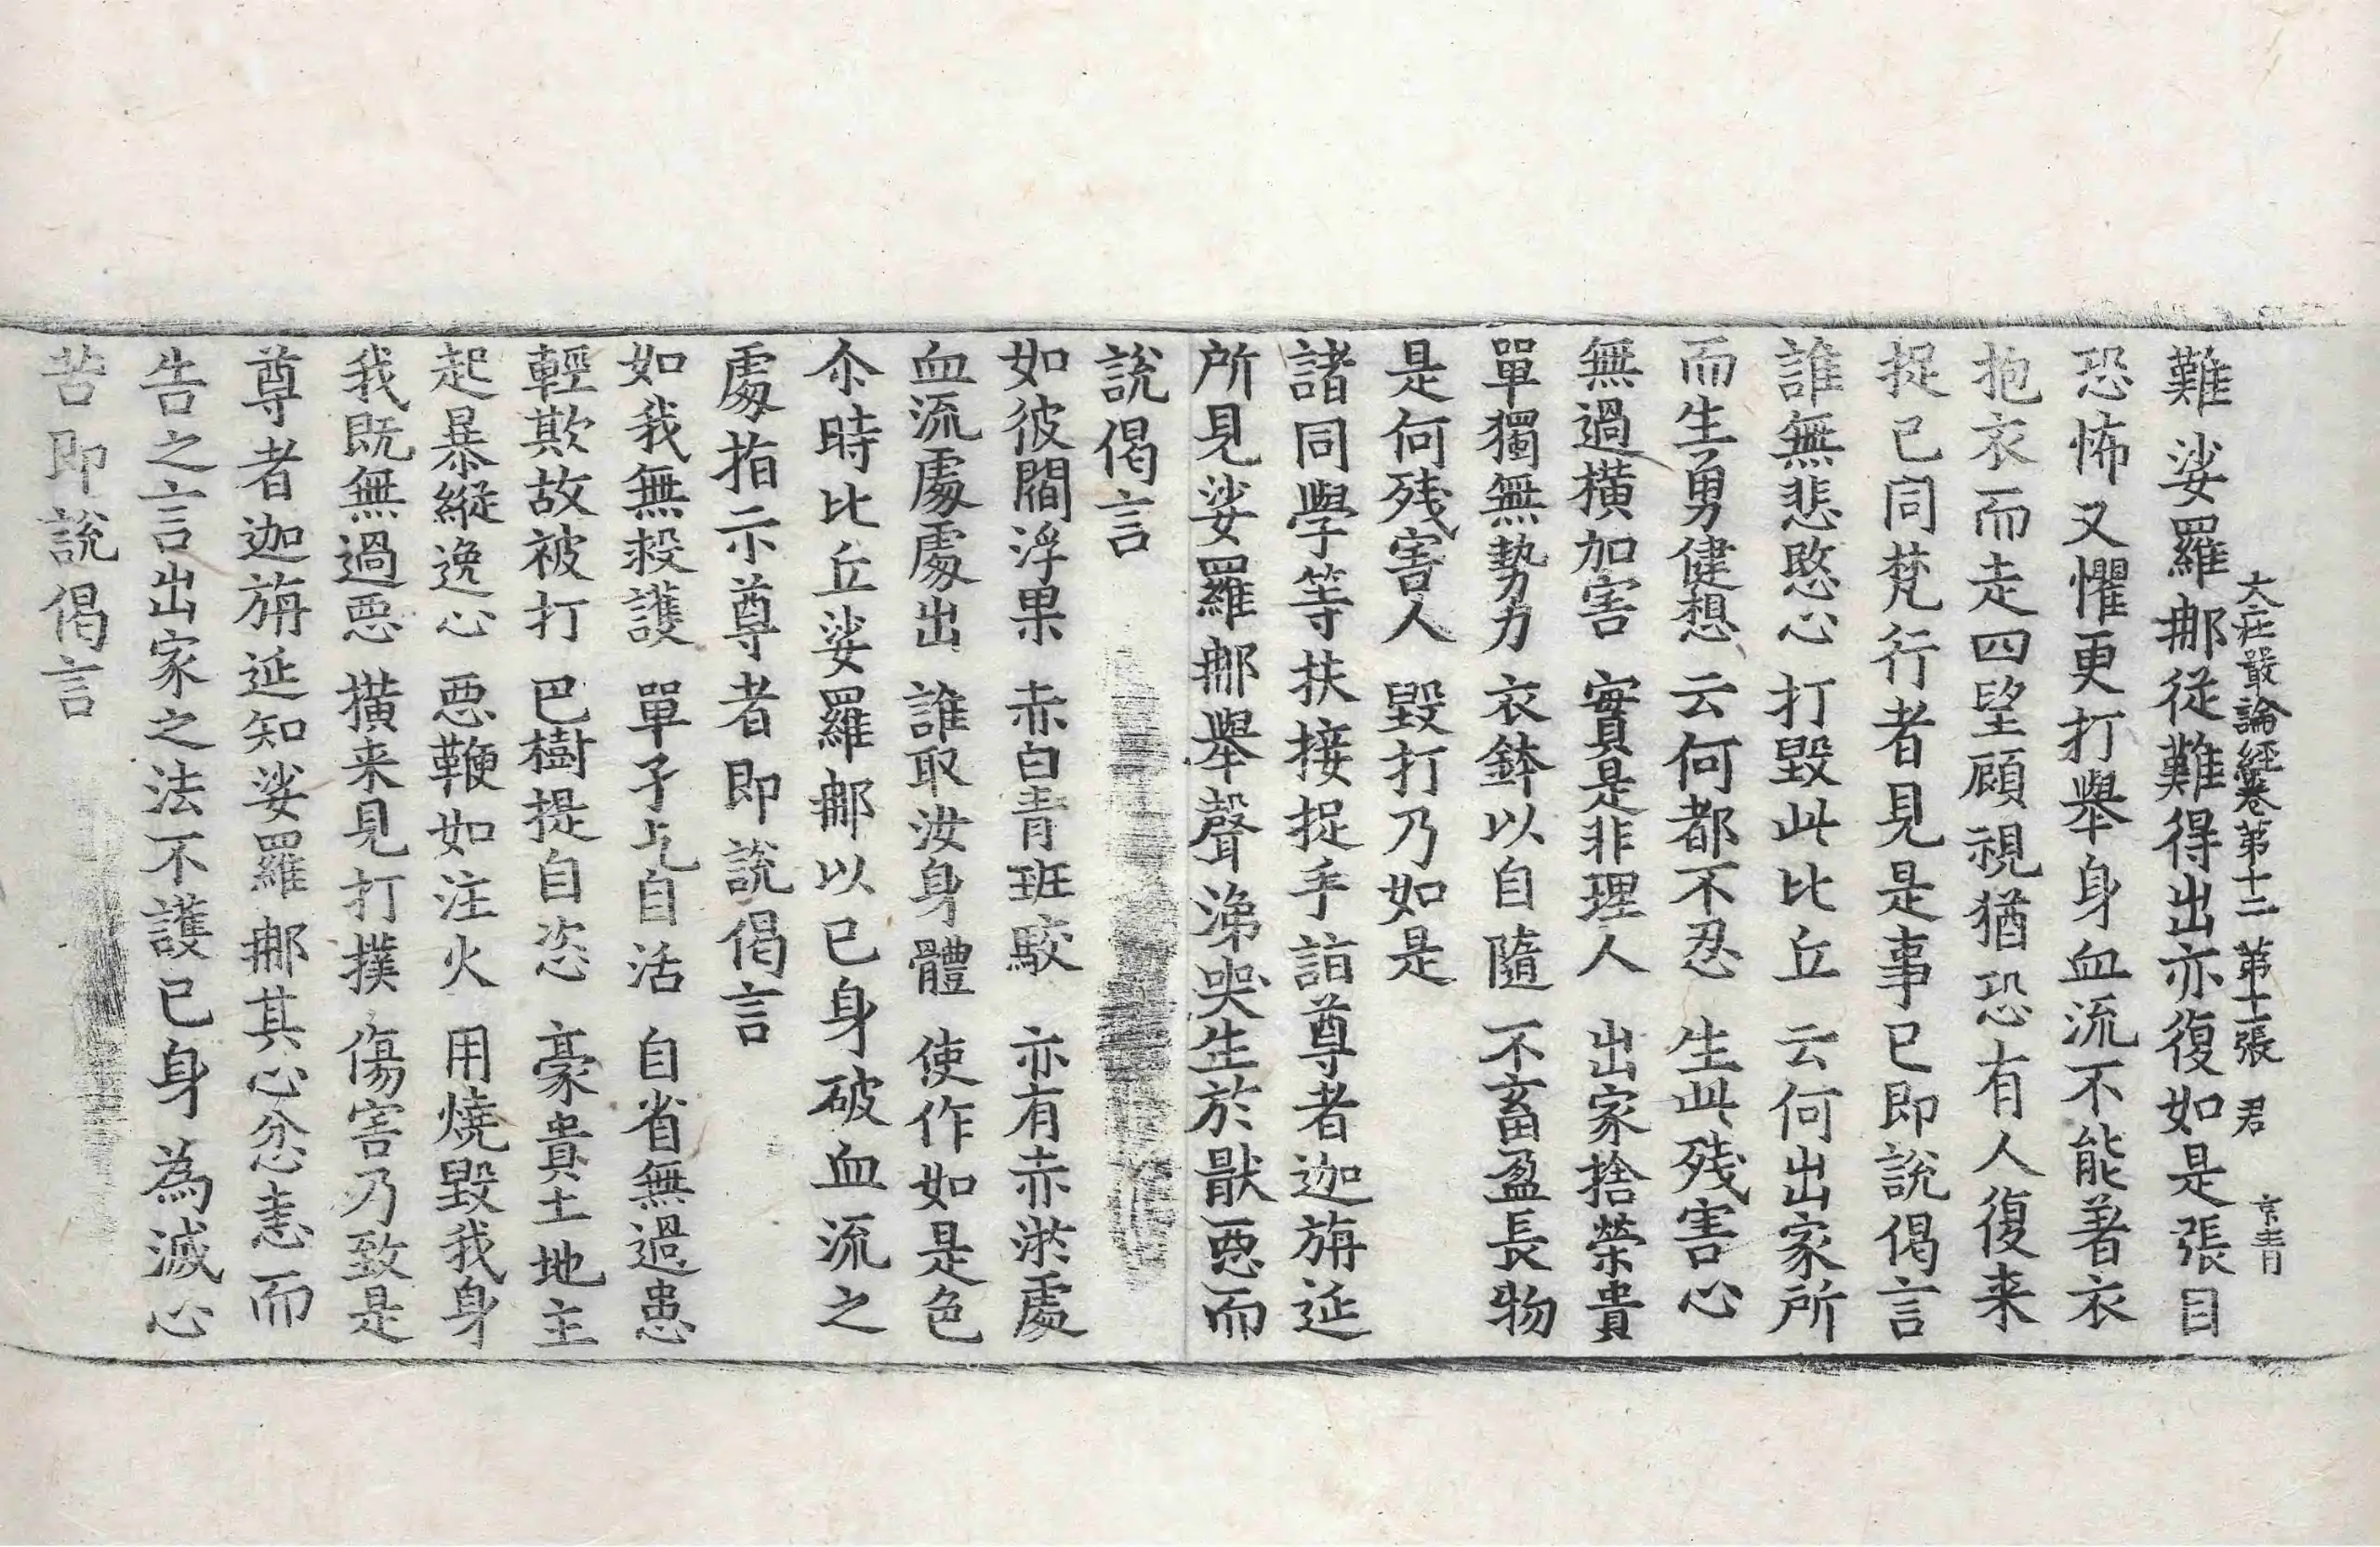 大莊嚴論經卷第十二 第十張 君 京青
難娑羅那從難得出亦復如是張目
恐怖又懼更打舉身血流不能著衣
抱衣而走四望顧視猶恐有人復来
捉已同梵行者見是事已即說偈言
誰無悲愍心 打毀此比丘 云何出家所
而生勇健想 云何都不忍 生此残害心
無過橫加害 實是非理人 出家捨榮貴
單獨無勢力 衣鉢以自隨 不畜盈長物
是何残害人 毀打乃如是
諸同學等扶接捉手詣尊者迦旃延
所見娑羅那舉聲涕哭生於猒惡而
說偈言
如彼閻浮果 赤白青班駮 亦有赤淤處
血流處處出 誰取汝身體 使作如是色
尒時比丘娑羅那以已身破血流之
處指示尊者即說偈言
如我無救護 單孑乞自活 自省無過患
輕欺故被打 巴樹提自恣 豪貴土地主
起暴縱逸心 惡鞭如注火 用燒毀我身
我既無過惡 橫来見打撲 傷害乃致是
尊者迦旃延知娑羅那其心忿恚而
告之言出家之法不護已身為滅心
苦即說偈言